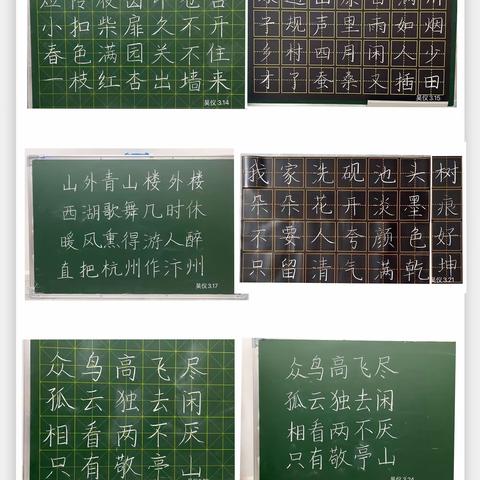 小扣柴扉久不开
春色满园关不住
一枝红杏出墙来
吴仪 3.14
子规声里雨如烟
乡村四月闲人少
才了蚕桑又插田
吴仪 3.15
山外青山楼外楼
西湖歌舞几时休
暖风熏得游人醉
直把杭州作汴州
吴仪 3.17
我家洗砚池头树
朵朵花开淡墨痕
不要人夸颜色好
只留清气满乾坤
吴仪 3.21
众鸟高飞尽
孤云独去闲
相看两不厌
只有敬亭山
众鸟高飞尽
孤云独去闲
相看两不厌
只有敬亭山
吴仪 3.24